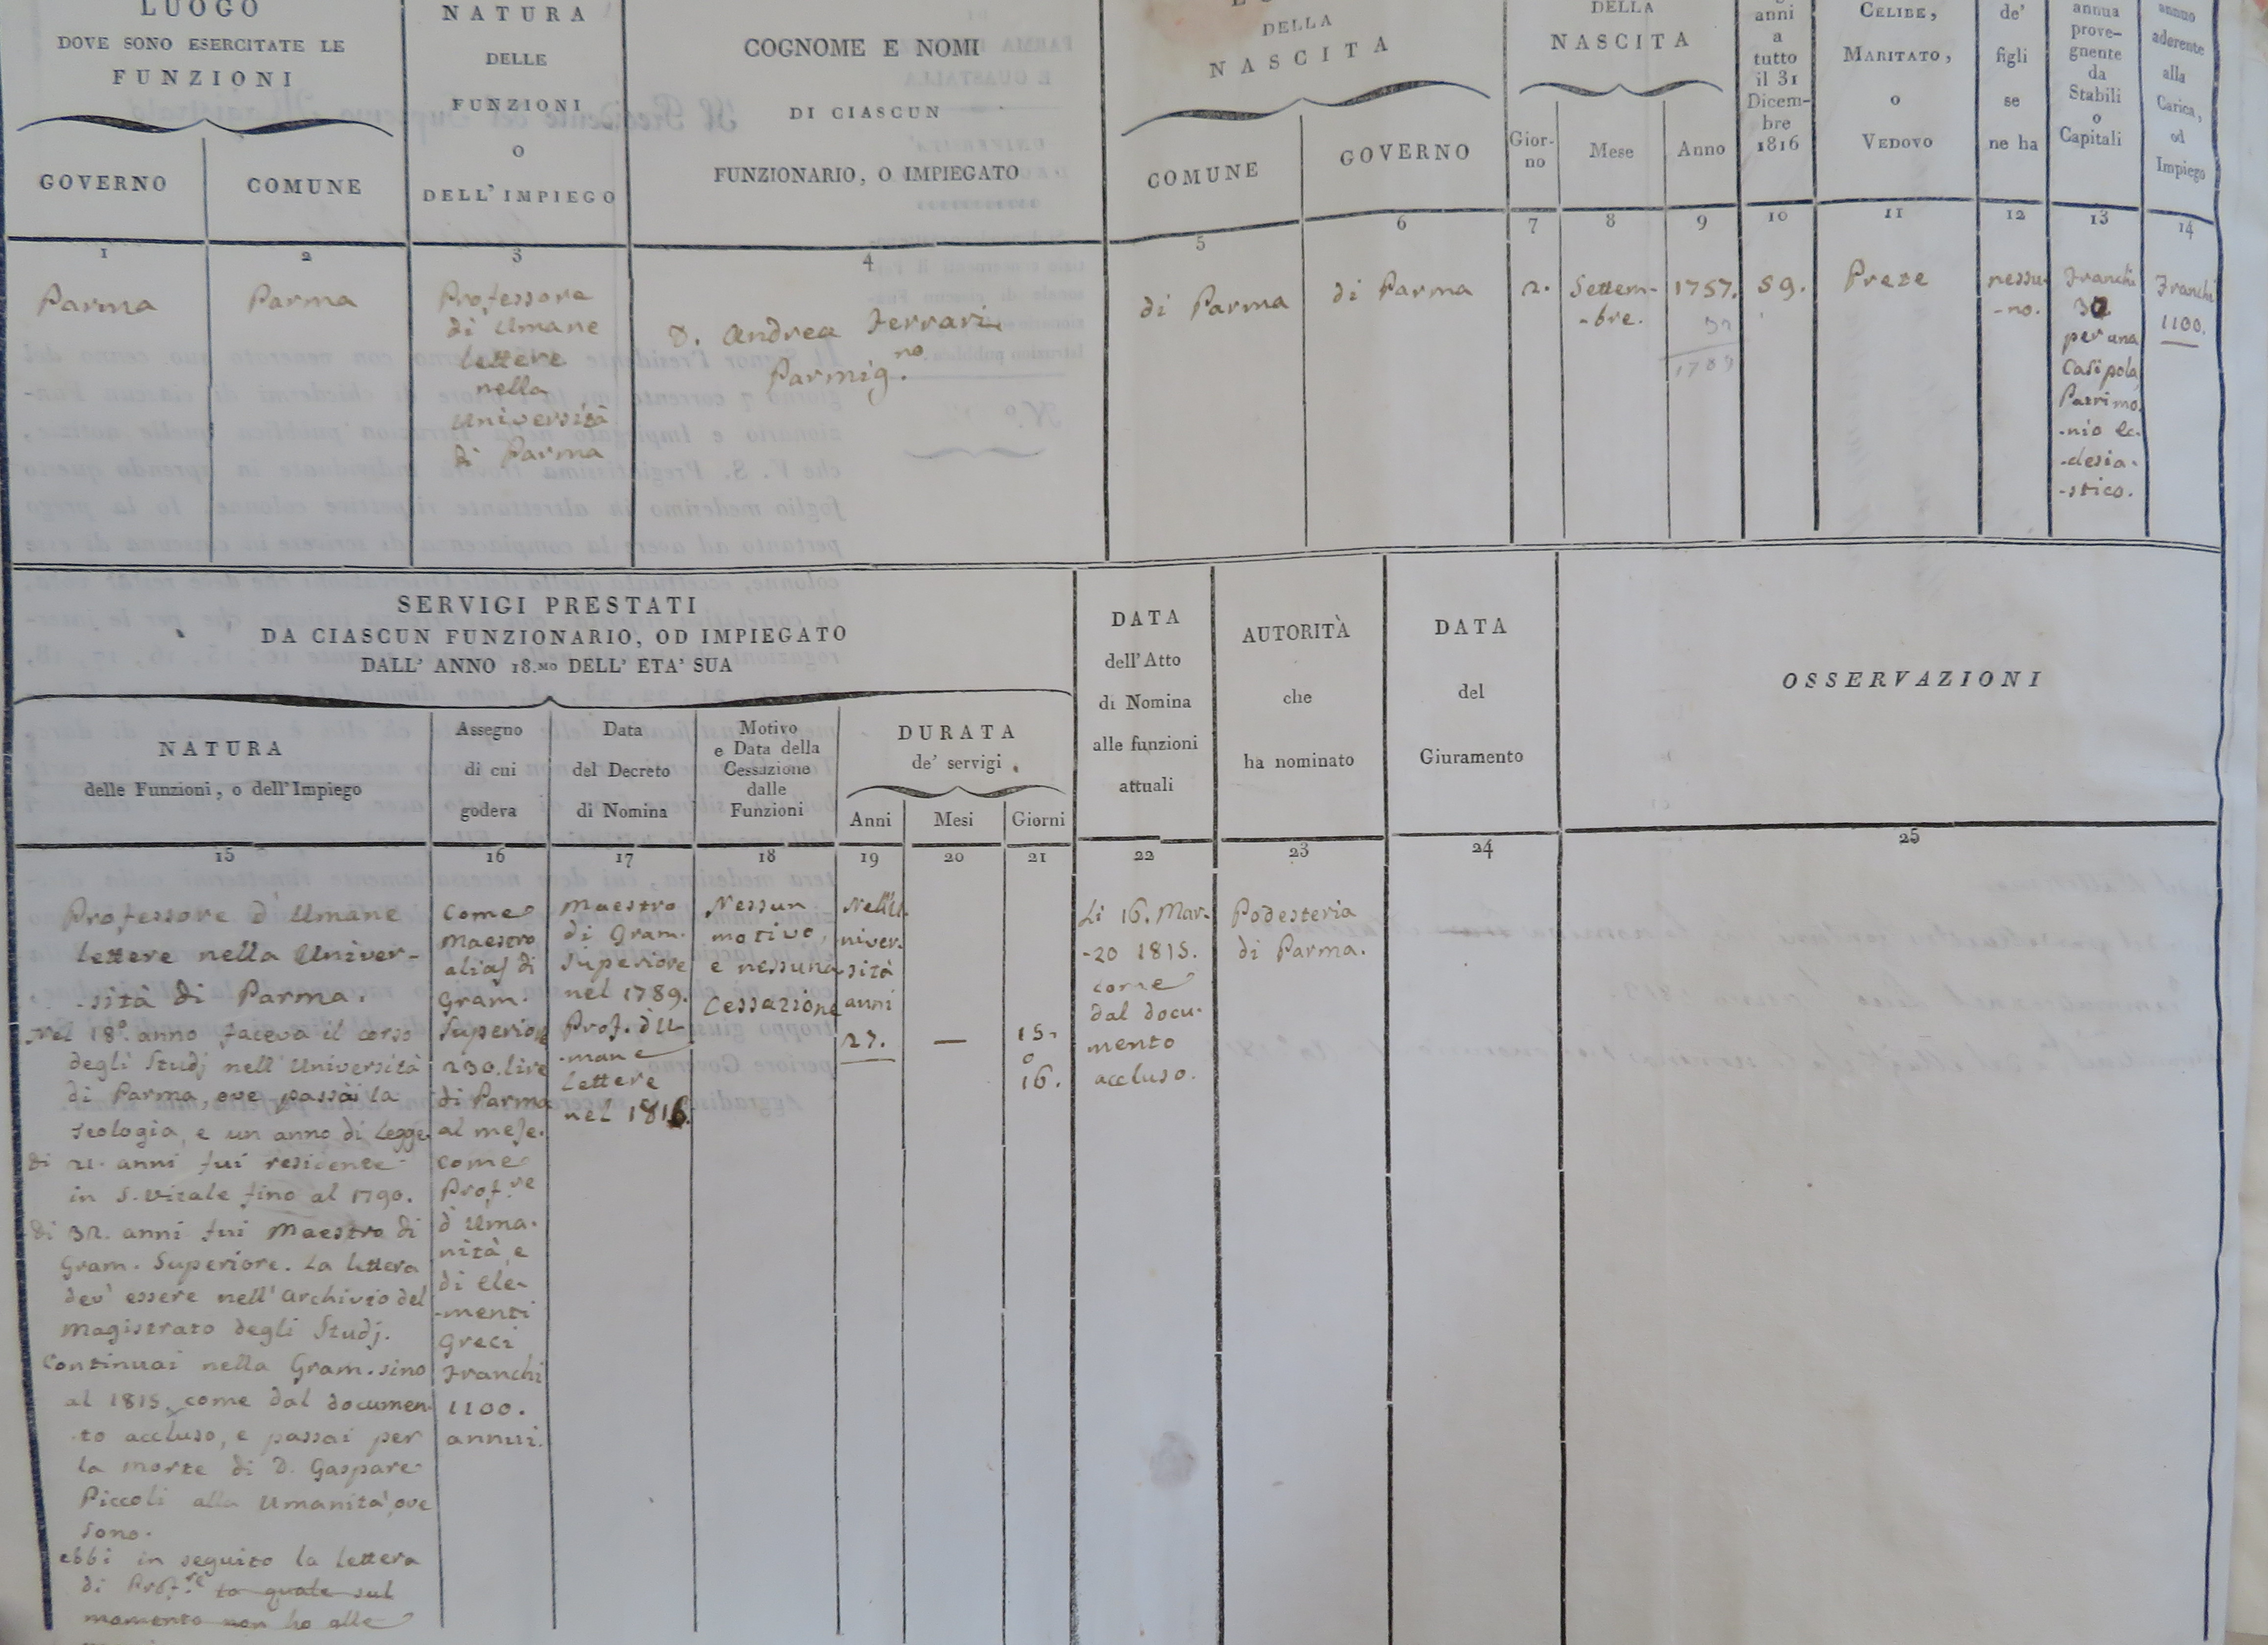 LUOGO
DOVE SONO ESERCITATE LE
FUNZIONI
GOVERNO
COMUNE
NATURA
DELLE
FUNZIONI
O
DELL' IMPIEGO
COGNOME E NOMI
DI CIASCUN
FUNZIONARIO, O IMPIEGATO
DELLA
NASCITA
COMUNE
GOVERNO
DELLA
NASCITA
Gior-
no
Mese
Anno
anni
a
tutto
il 31
Dicem-
bre
1816
CELIBE,
MARITATO,
o
VEDOVO
de'
figli
se
ne ha
annua
prove-
gnente
da
Stabili
o
Capitali
annuo
aderente
alla
Carica,
od
Impiego
1
2
3
4
5
6
7
8
9
10
11
12
13
14
Parma
Parma
Professore
di Umane
lettere
nella
Università
di Parma
D. Andrea Ferrari
Parmig.no
di Parma
di Parma
2.
Settem-
-bre.
1757.
32
1789
59.
Prete
nessu-
-no.
Franchi
30
per una
Casipola
Patrimo.
-nio Ec-
-clesia-
-stico.
Franchi
1100.
SERVIGI PRESTATI
DA CIASCUN FUNZIONARIO, OD IMPIEGATO
DALL' ANNO 18.MO DELL' ETA' SUA
NATURA
delle Funzioni, o dell'Impiego
Assegno
di cui
godeva
Data
del Decreto
di Nomina
Motivo
e Data della
Cessazione
dalle
Funzioni
DURATA
de' servigi
Anni
Mesi
Giorni
DATA
dell'Atto
di Nomina
alle funzioni
attuali
AUTORITÀ
che
ha nominato
DATA
del
Giuramento
OSSERVAZIONI
15
16
17
18
19
20
21
22
23
24
25
Professore d'Umane
lettere nella Univer-
-sità di Parma.
Nel 18.° anno faceva il corso
degli Studj nell'Università
di Parma, ove passai la
Teologia, e un anno di Legge.
di 21. anni fui residente
in S. Vitale fino al 1790.
di 32. anni fui Maestro di
Gram. Superiore. La lettera
dev' essere nell'Archivio del
Magistrato degli Studj.
Continuai nella Gram. sino
al 1815, come dal documen-
-to accluso, e passai per
la morte di D. Gaspare
Piccoli alla Umanità, ove
sono.
ebbi in seguito la lettera
di Prof.re la quale sul
momento non ho alle
Come
Maestro
alias di
Gram.
Superiore
230. lire
di Parma
al mese.
Come
Prof.re
d'Uma-
nità, e
di ele-
-menti
Greci
Franchi
1100.
annui.
Maestro
di Gram.
Superiore
nel 1789.
Prof. d'U-
-mane
Lettere
nel 1816.
Nessun
motivo,
e nessuna
Cessazione
Nell'U-
niver-
sità
anni
27.
—
15.
o
16.
Li 16. Mar-
-zo 1815.
come
dal docu-
mento
accluso.
Podesteria
di Parma.